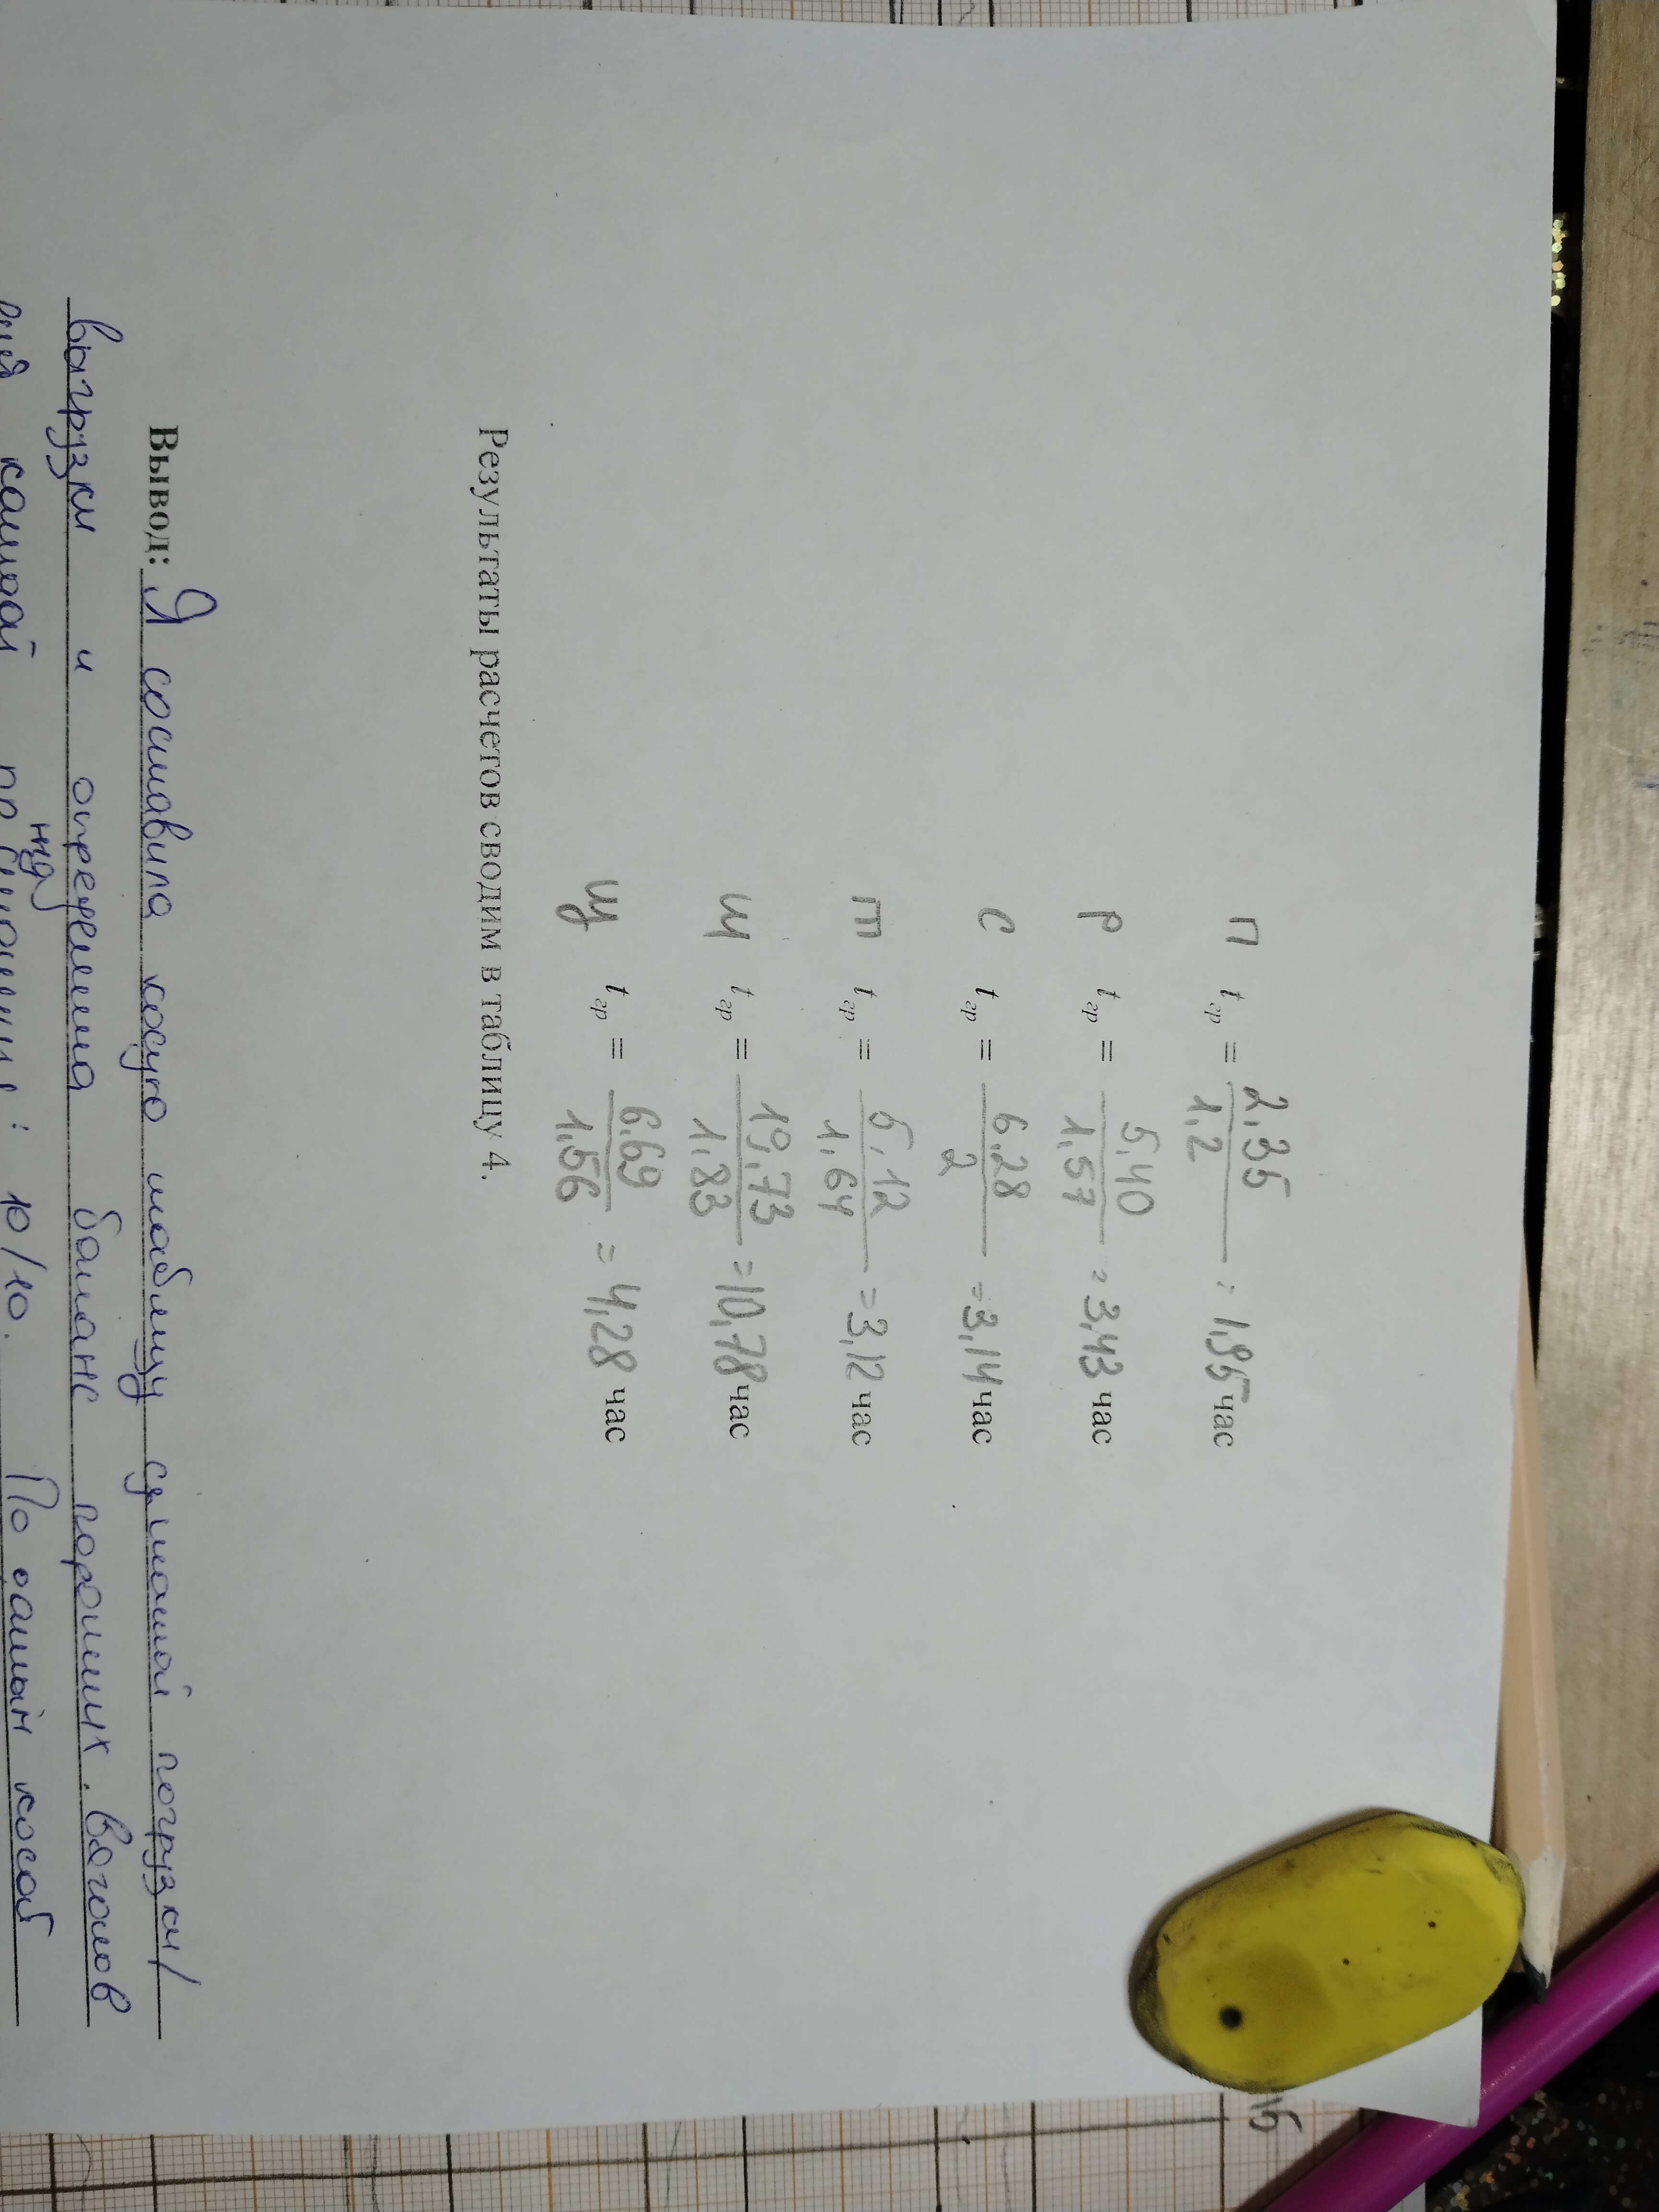 П t гр = 2,35 / 1,2 = 1,95 час
Р t гр = 5,40 / 1,57 = 3,43 час
С t гр = 6,28 / 2 = 3,14 час
Т t гр = 5,12 / 1,64 = 3,12 час
Ш t гр = 19,73 / 1,83 = 10,78 час
Щ t гр = 6,69 / 1,56 = 4,28 час
Результаты расчетов сводим в таблицу 4.
Вывод: Я составила косую таблицу суточной погрузки/
выгрузки и определила баланс порожних вагонов
жд
10/10. По данным косой
15